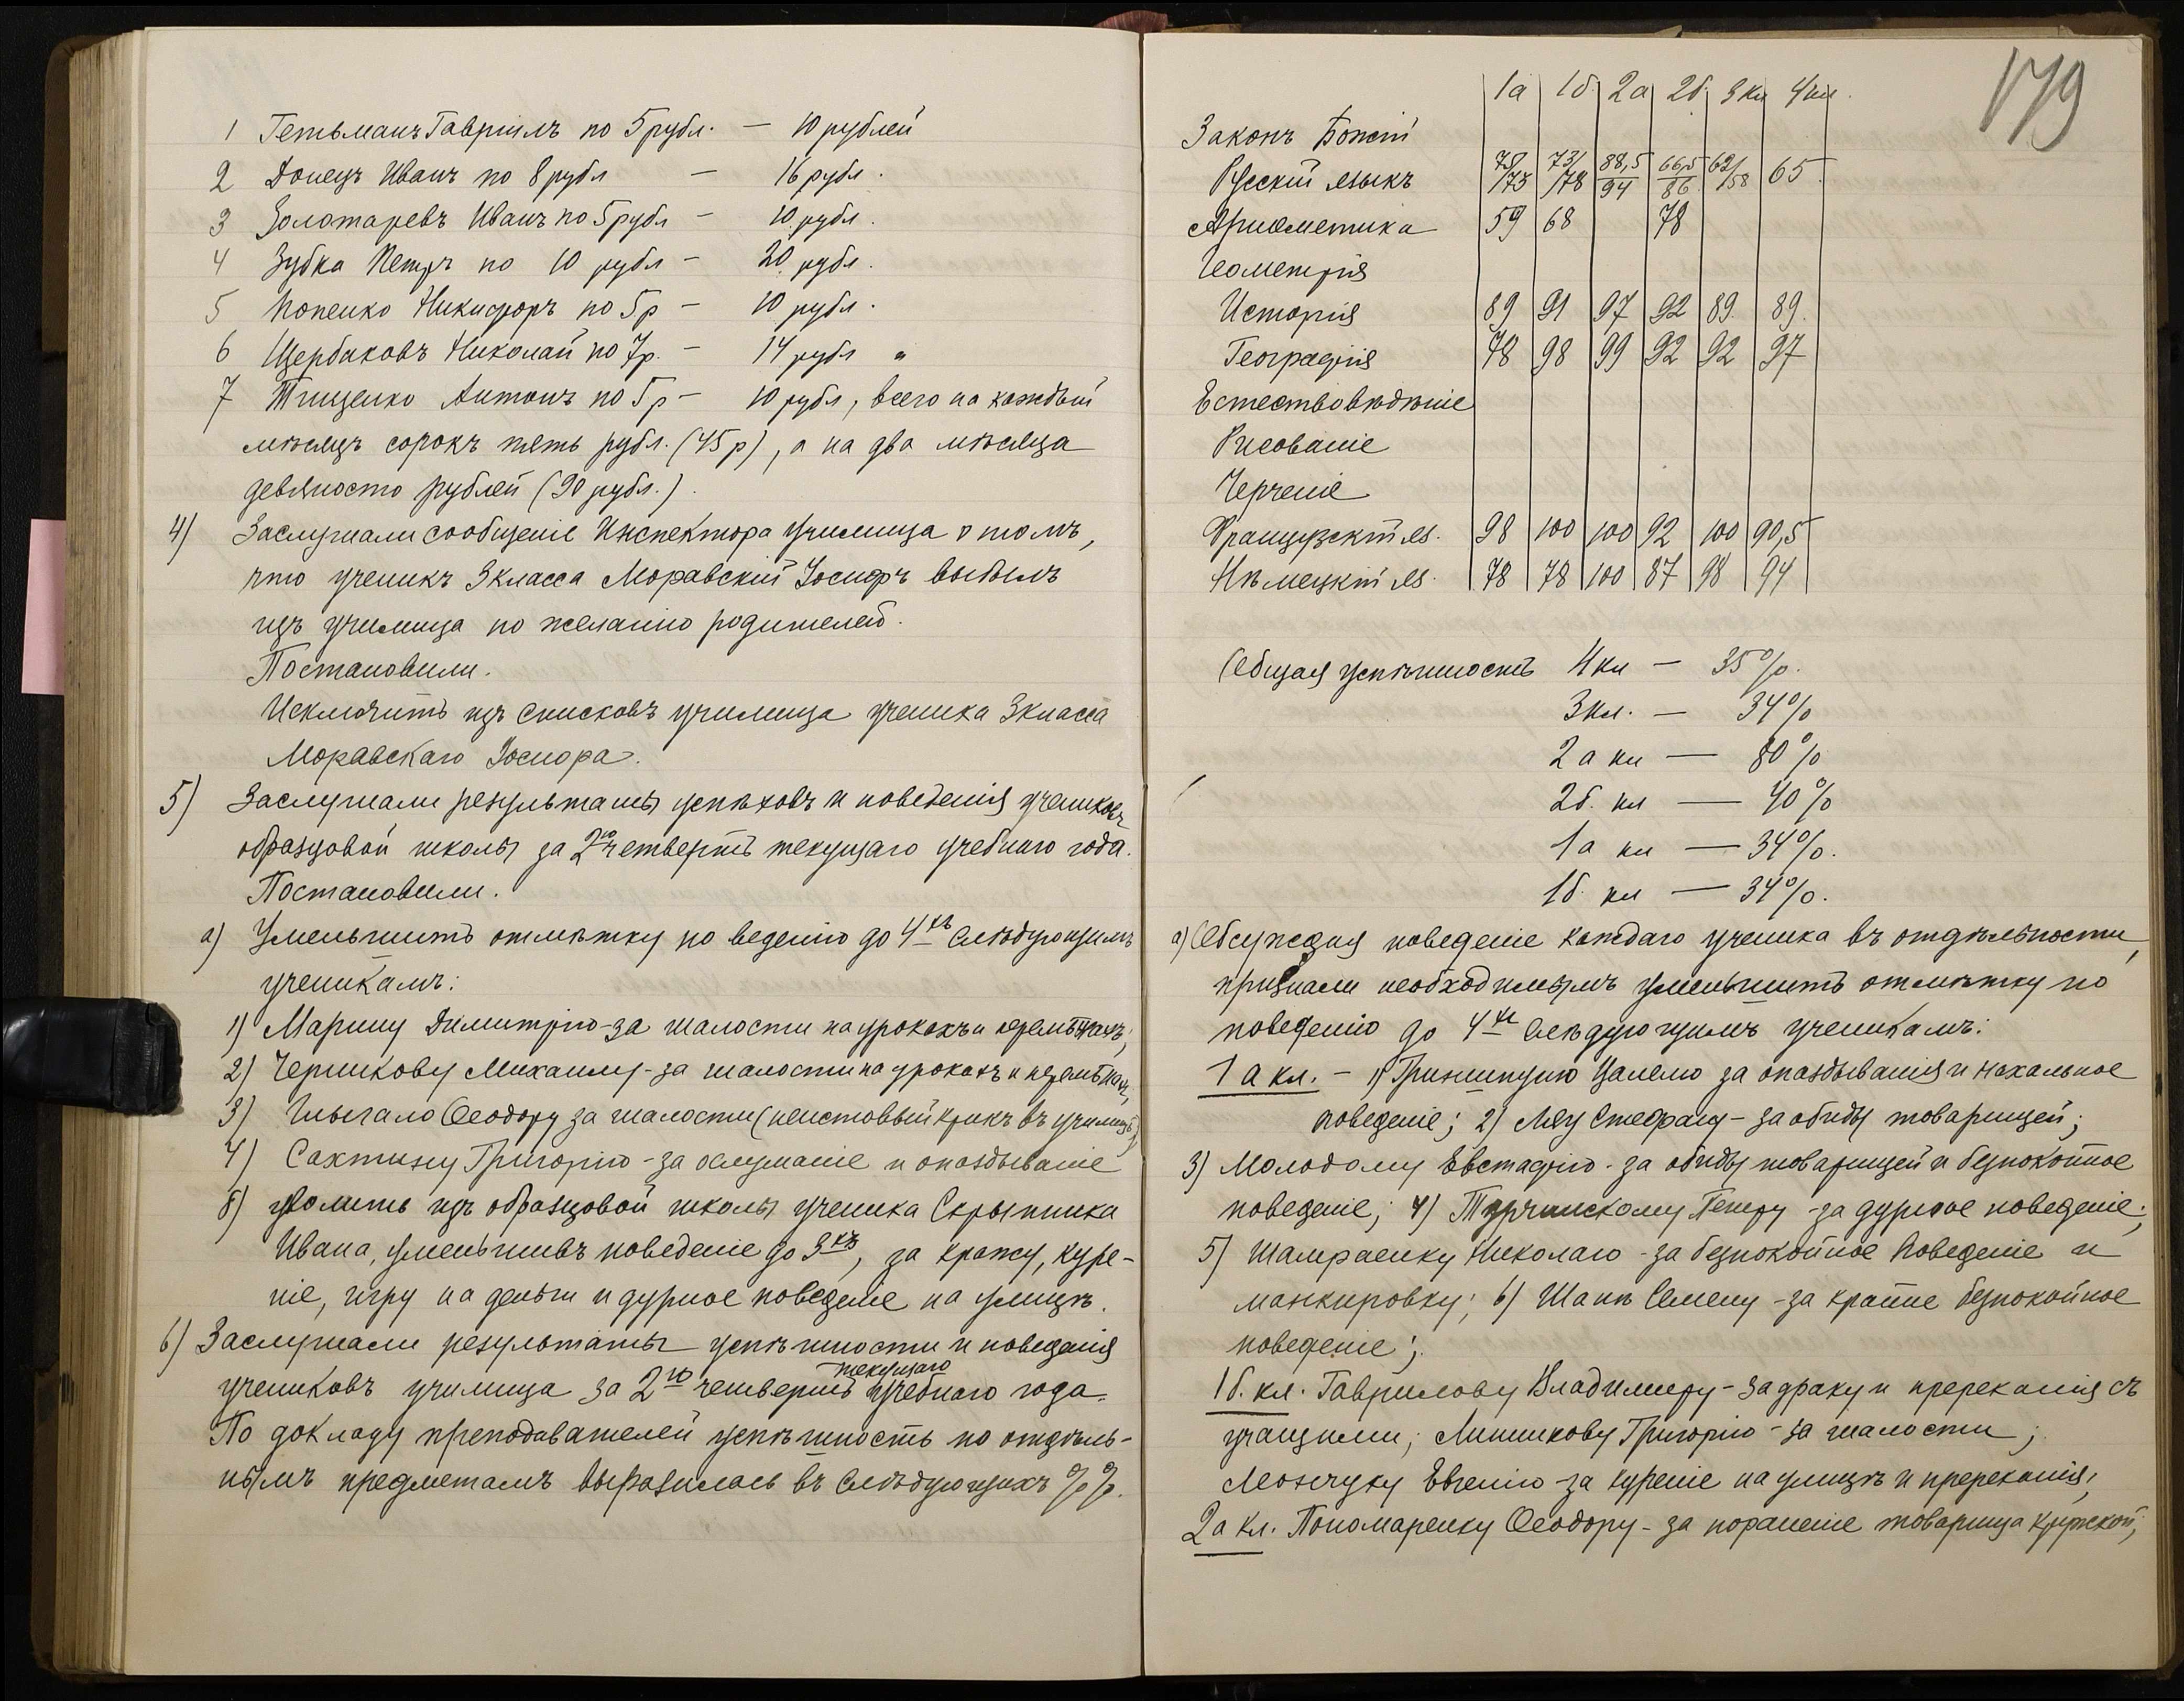 1 Гетьманъ Гавріилъ по 5 рубл. — 10 рублей
2 Донецъ Иванъ по 8 рубл — 16 рубл.
3 Золотаревъ Иванъ по 5 рубл — 10 рубл.
4 Зубка Петръ по 10 рубл — 20 рубл.
5 Попенко Никифоръ по 5 р — 10 рубл.
6 Щербаковъ Николай по 7 р. — 14 рубл "
7 Тищенко Антонъ по 5 р — 10 рубл, всего на каждый
мѣсяцъ сорокъ пять рубл. (45 р), а на два мѣсяца
девяносто рублей (90 рубл.).
4) Заслушали сообщеніе Инспектора училища о томъ,
что ученикъ 3 класса Моравскій Іосифъ выбылъ
изъ училища по желанію родителей.
Постановили.
Исключить изъ списковъ училища ученика 3 класса
Моравскаго Іосифа.
5) Заслушали результаты успѣховъ и поведенія учениковъ
образцовой школы за 2ю четверть текущаго учебнаго года.
Постановили.
а) Уменьшить отмѣтку по веденію до 4хъ слѣдующимъ
ученикамъ:
1) Марину Димитрію - за шалости на урокахъ и
2) Черникову Михаилу - за шалости на урокахъ и
3) Ѳеодору за шалости (неистовый крикъ въ училищѣ)
4) Сахтину Григорію - за ослушаніе и опаздываніе
б) уволить изъ образцовой школы ученика Скрыпника
Ивана, уменьшивъ поведеніе до 3хъ, за кражу, куре-
ніе, игру на деньги и дурное поведеніе на улицѣ.
6) Заслушали результаты успѣшности и поведенія
учениковъ училища за 2ю четверть текущаго учебнаго года.
По докладу преподавателей успѣшность по отдѣль-
нымъ предметамъ выразилась въ слѣдующихъ %%.
179
1а 1б. 2а 2б. 3 кл 4 кл.
Законъ Божій
Русскій языкъ 78/73 73/78 88,5/94 66,5/86 62/58 65
Ариѳметика 59 68 78
Геометрія
Исторія 89 91 97 92 89. 89.
Географія 78 98 99 92 92 97
Естествовѣдѣніе
Рисованіе
Черченіе
Французскій яз. 98 100 100 92 100 90,5
Нѣмецкій яз. 78 78 100 87 98 94
Общая успѣшность 4 кл — 35%.
3 кл. — 34%
2а кл — 80%
2б. кл — 40%
1а кл — 34%.
1б. кл — 34%.
а) Обсуждая поведеніе каждаго ученика въ отдѣльности,
признали необходимымъ уменьшить отмѣтку по
поведенію до 4хъ слѣдующимъ ученикамъ:
1а кл. - 1) за опаздыванія и нахальное
поведеніе; 2) Ляу Стефану - за обиды товарищей;
3) Молодому Евстафію - за обиды товарищей и безпокойное
поведеніе; 4) Турчинскому Петру - за дурное поведеніе;
5) Шамраенку Николаю - за безпокойное поведеніе и
манкировку; 6) Семену - за крайне безпокойное
поведеніе;
1б. кл. Гаврилову Владимиру - за драку и пререканія съ
учащими; Линникову Григорію - за шалости;
Мозгуку Евгенію - за куреніе на улицѣ и пререканія;
2а кл. Пономаренку Ѳеодору - за пораненіе товарища кружкой;